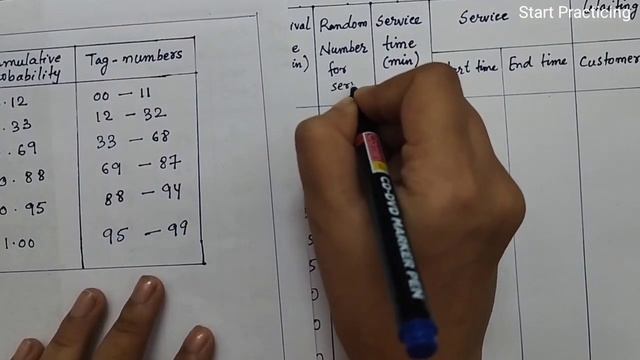 Start Practicing
Cumulative
Probability
Tag-numbers
.12
.33
.69
0.88
0.95
1.00
00 – 11
12 – 32
33 – 68
69 – 87
88 – 94
95 – 99
Random
Number
for
ser
Service
time
(min)
Service
Start time
End time
Waiting
Customer
CD-DVD MARKER PEN